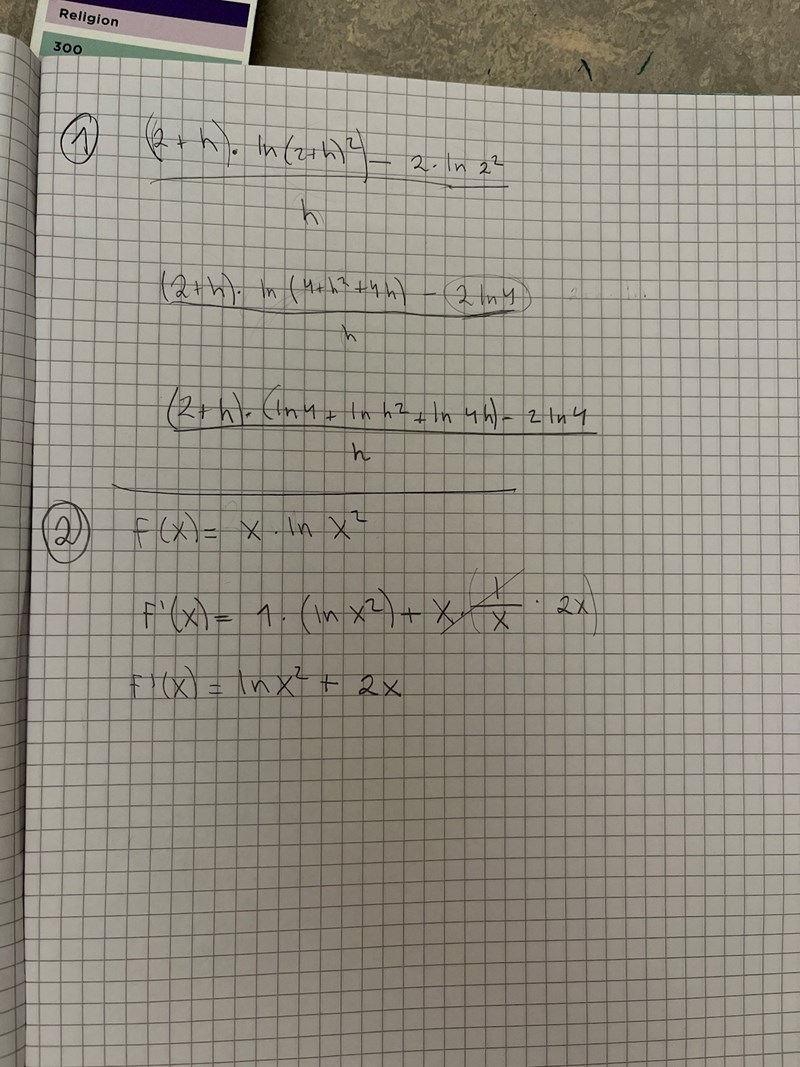 Religion
300
① (2 + h) · ln(2+h)²) - 2 · ln 2²
h
(2+h) · ln (4+h²+4h) - 2 ln 4
h
(2+h) · (ln 4 + ln h² + ln 4h) - 2 ln 4
h
② f(x) = x · ln x²
f'(x) = 1 · (ln x²) + x · (1/x · 2x)
f'(x) = ln x² + 2x